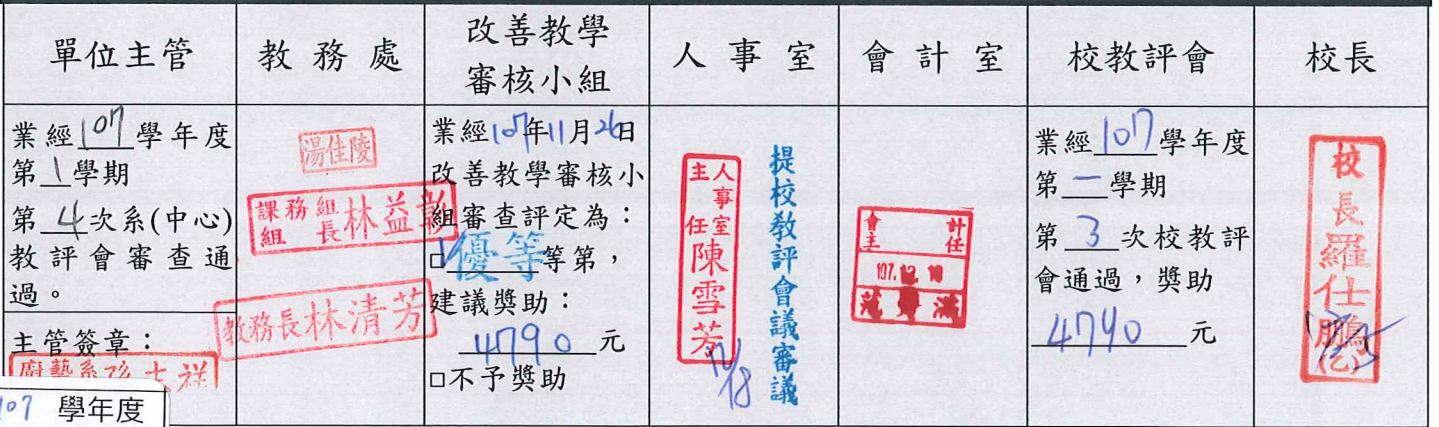 單位主管
教務處
改善教學
審核小組
人事室
會計室
校教評會
校長
業經107學年度
第1學期
第4次系(中心)
教評會審查通
過。
主管簽章：
107 學年度
湯佳陵
課務組
組長林益彰
教務長林清芳
業經107年11月26日
改善教學審核小
組審查評定為：
□優等等第，
建議獎助：
4790元
□不予獎助
人事室
主任陳雪芳
12/18
提校教評會議審議
會計
主任
107.12.18
業經107學年度
第一學期
第3次校教評
會通過，獎助
4790元
校長羅仕鵬(乙)